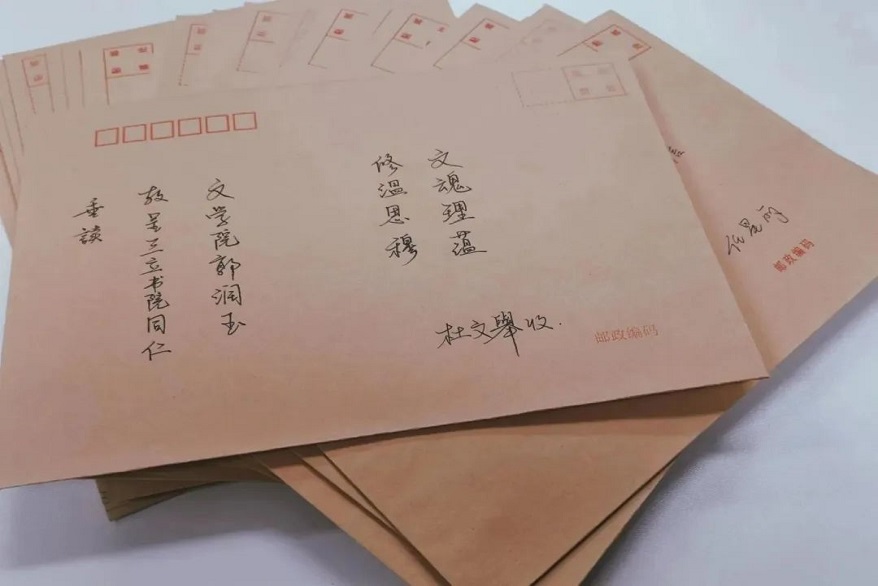 文魂理蕴
修温恩穆
杜文舉收.
文学院郭润玉
敬呈三立书院同仁
垂谈
邮政编码
邮政编码